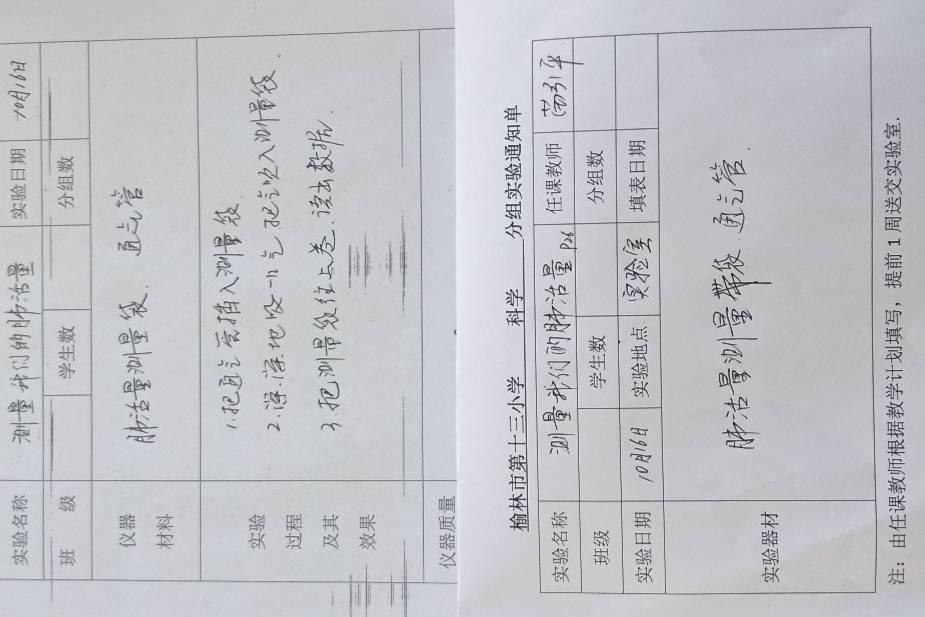 实验名称 测量我们的肺活量 实验日期 10月16日
班级 学生数 分组数
仪器材料 肺活量测量袋、通气管
实验过程及其效果
1.把通气管插入测量袋.
2.深深地吸一口气,把气吹入测量袋.
3.把测量袋往上卷、读出数据.
仪器质量
榆林市第十三小学 科学 分组实验通知单
实验名称 测量我们的肺活量 P26 任课教师
班级 学生数 分组数
实验日期 10月16日 实验地点 实验室 填表日期
实验器材 肺活量测量带袋、通气管.
注：由任课教师根据教学计划填写，提前1周送交实验室.